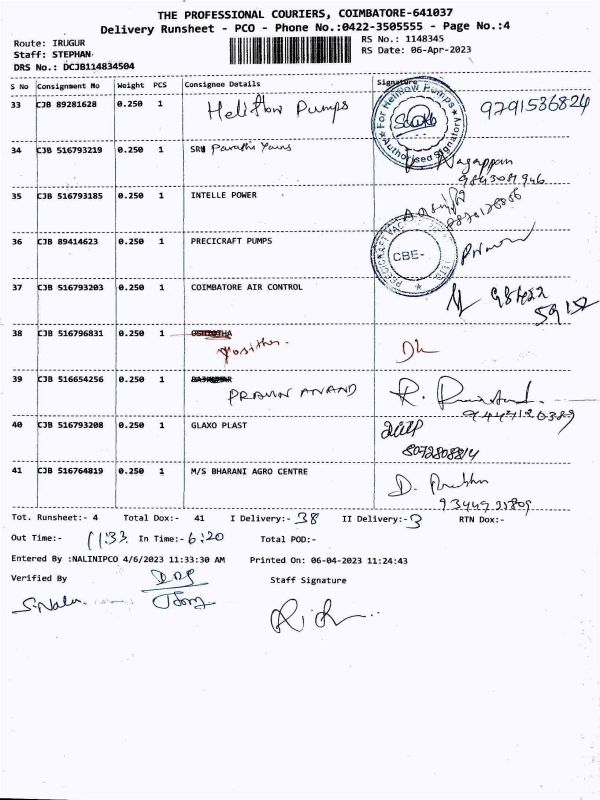 THE PROFESSIONAL COURIERS, COIMBATORE-641037
Delivery Runsheet - PCO - Phone No.:0422-3505555 - Page No.:4
Route: IRUGUR
RS No.: 1148345
Staff: STEPHAN
RS Date: 06-Apr-2023
DRS No.: DCJB114834504
S No Consignment No Weight PCS Consignee Details Signature
33 CJB 89281628 0.250 1 Heliflow Pumps 9791536824
For Heliflow Pumps
Authorised Signatory
34 CJB 516793219 0.250 1 SRI Parvathi Yarns Nagappan
9843081946
35 CJB 516793185 0.250 1 INTELLE POWER
36 CJB 89414623 0.250 1 PRECICRAFT PUMPS
CBE-
37 CJB 516793203 0.250 1 COIMBATORE AIR CONTROL 98422
59152
38 CJB 516796831 0.250 1
39 CJB 516654256 0.250 1 PRAVIN ANAND
9444120389
40 CJB 516793208 0.250 1 GLAXO PLAST
8072808814
41 CJB 516764819 0.250 1 M/S BHARANI AGRO CENTRE D. Prabhu
9344925809
Tot. Runsheet:- 4 Total Dox:- 41 I Delivery:- 38 II Delivery:- 3 RTN Dox:-
Out Time:- 11:33 In Time:- 6:20 Total POD:-
Entered By :NALINIPCO 4/6/2023 11:33:30 AM Printed On: 06-04-2023 11:24:43
Verified By Staff Signature
S.Nalini